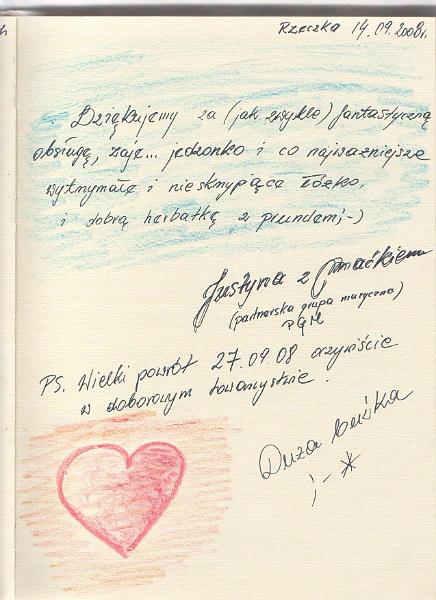 Rzeczka 14.09.2008r.
Dziękujemy za (jak zwykle) fantastyczną
obsługę, zaje... jedzonko i co najważniejsze
wytrzymałe i nieskrzypiące łóżko,
i dobrą herbatkę z prundem ;-)
Justyna z Maćkiem
(partnerska grupa muzyczna)
PGM
PS. Wielki powrót 27.09.08 oczywiście
w doborowym towarzystwie.
Duża buźka
;-*